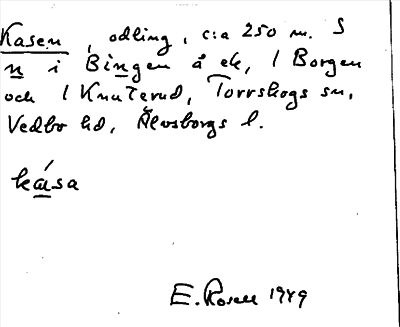 Kasen, odling, c:a 250 m. S
n i Bingen å ek, 1 Borgen
och 1 Knuterud, Torrskogs sn,
Vedbo hd, Älvsborgs l.
kása
E. Rosell 1949